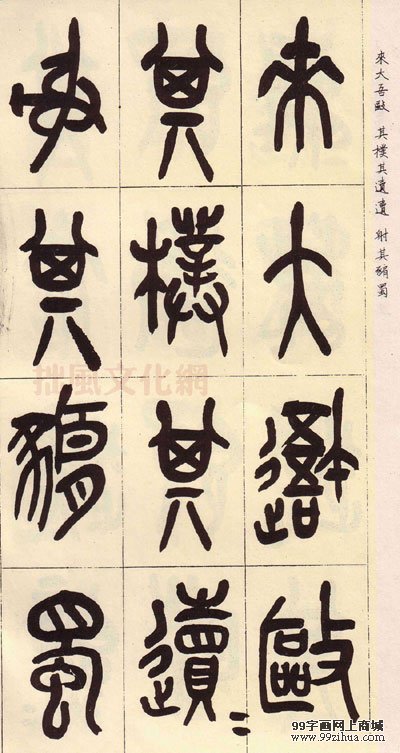 來大吾敺 其樸其遺遺 射其豜蜀
來大吾敺
其樸其遺=
射其豜蜀
拙風文化網
99字画网上商城
www.99zihua.com